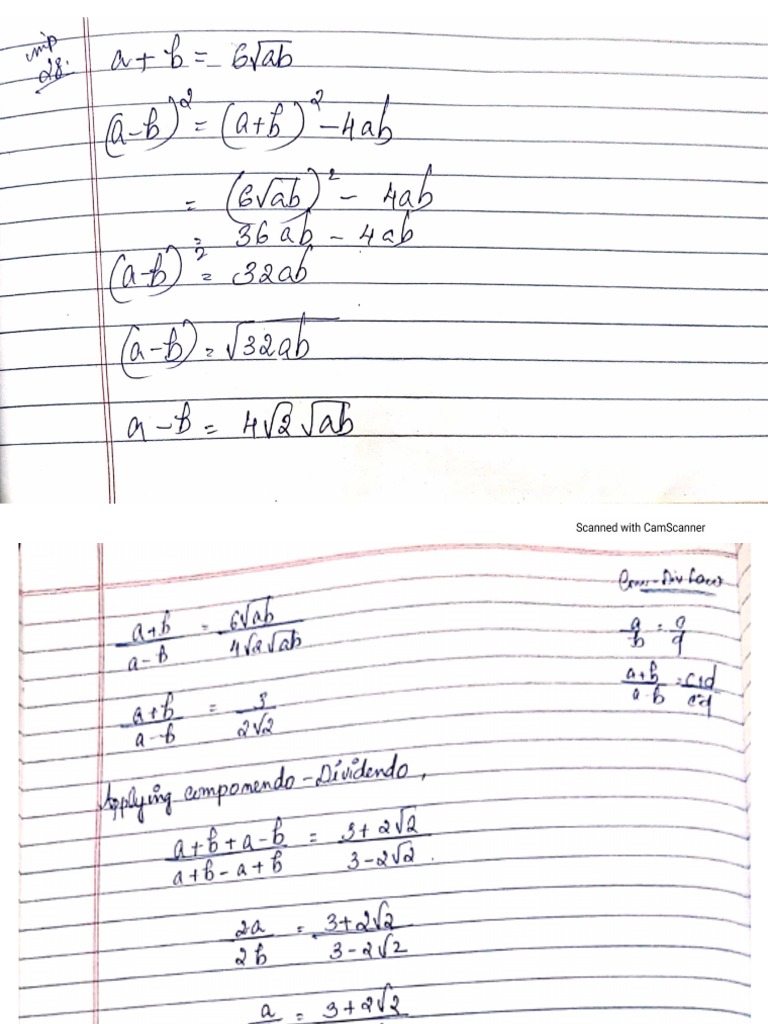 imp
28.
a + b = 6√ab
(a-b)² = (a+b)² - 4ab
= (6√ab)² - 4ab
= 36ab - 4ab
(a-b)² = 32ab
(a-b) = √32ab
a - b = 4√2 √ab
Scanned with CamScanner
a+b/a-b = 6√ab/4√2√ab
a+b/a-b = 3/2√2
a/b = c/d
a+b/a-b = c+d/c-d
Applying componendo-Dividendo,
a+b+a-b/a+b-a+b = 3+2√2/3-2√2
2a/2b = 3+2√2/3-2√2
a = 3+2√2